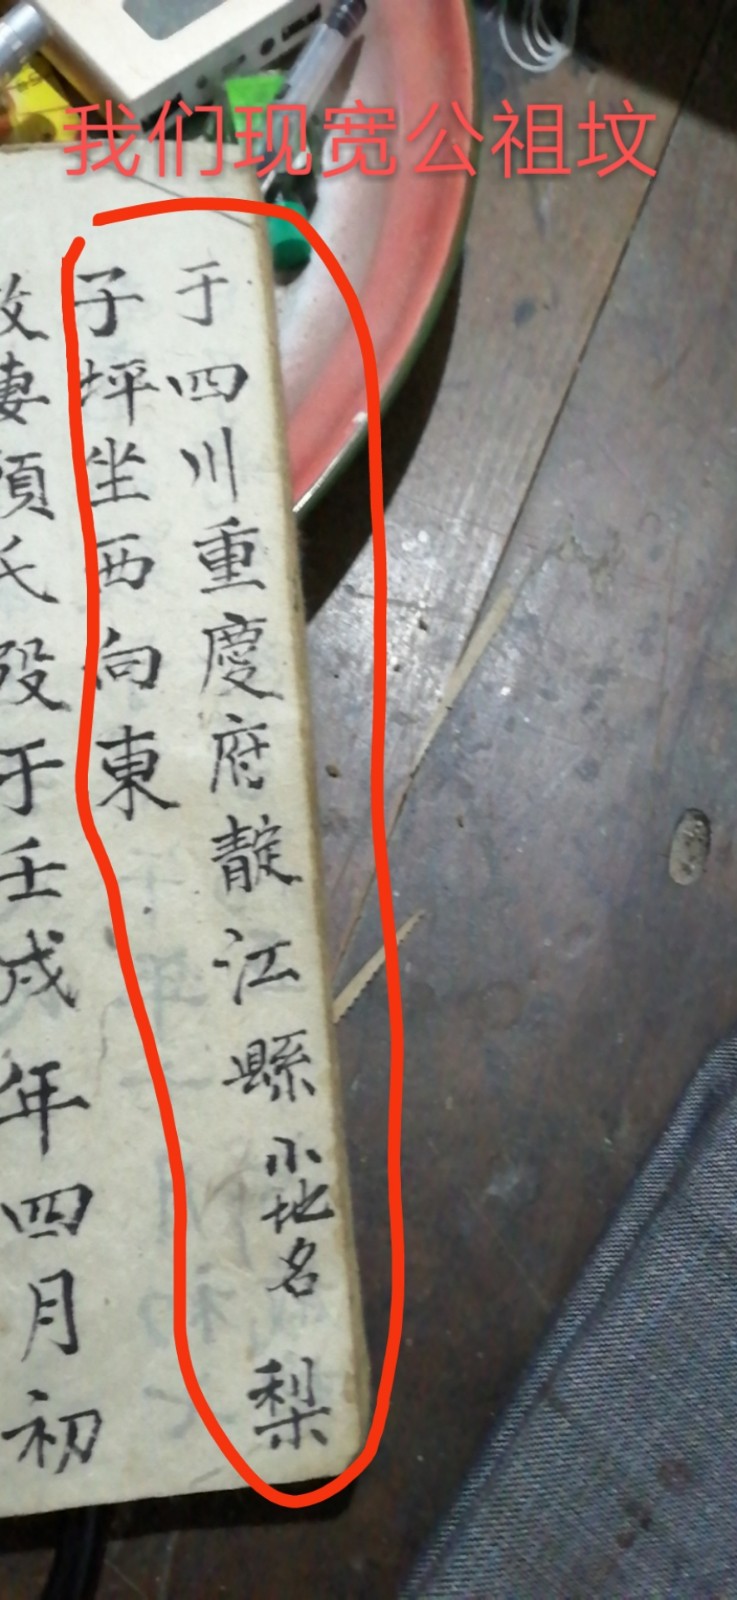 我们现宽公祖坟
于四川重慶府靛江縣小地名梨
子坪坐西向東
故妻項氏殁于壬戍年四月初